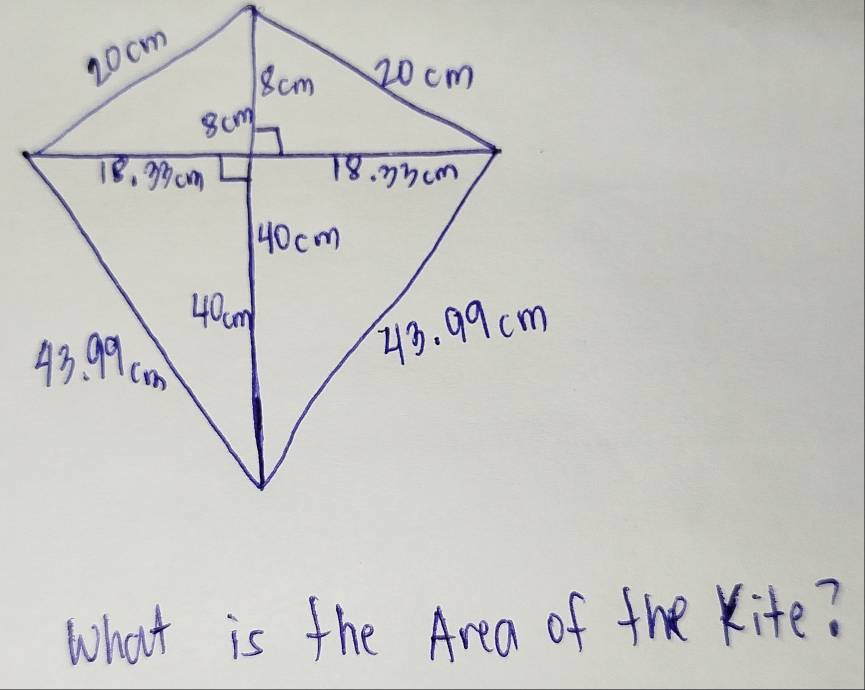 20 cm
20 cm
8cm
8cm
18.33cm
18.33cm
40cm
40cm
43.99cm
43.99cm
What is the Area of the Kite?